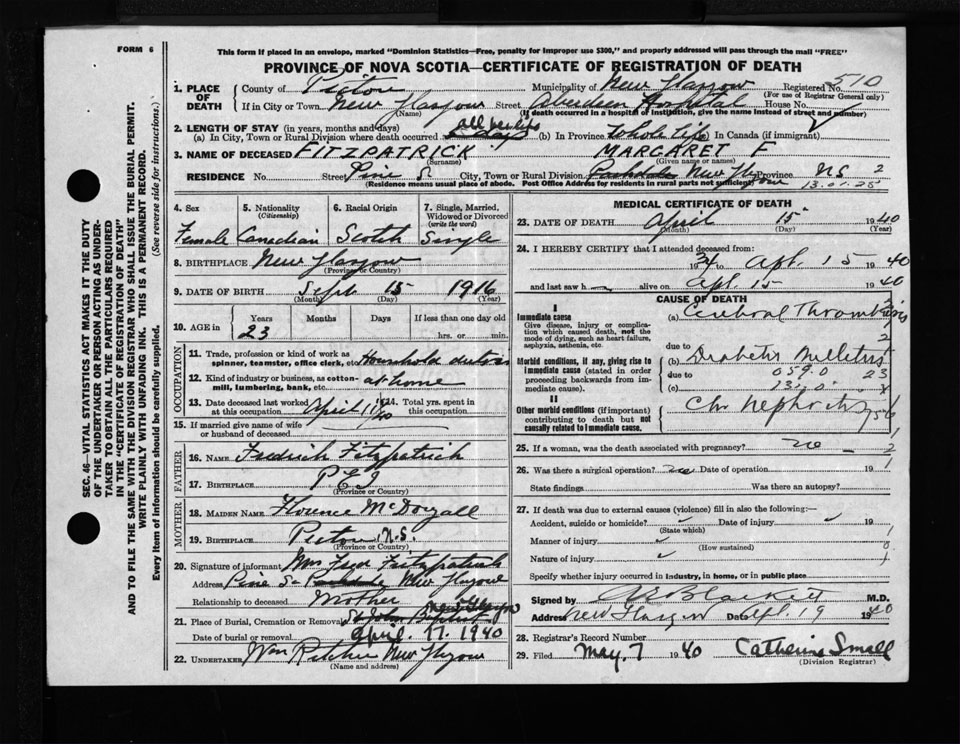 FORM 6
This form if placed in an envelope, marked "Dominion Statistics—Free, penalty for improper use $300," and properly addressed will pass through the mail "FREE"
PROVINCE OF NOVA SCOTIA—CERTIFICATE OF REGISTRATION OF DEATH
SEC. 46—VITAL STATISTICS ACT MAKES IT THE DUTY
OF THE UNDERTAKER OR PERSON ACTING AS UNDER-
TAKER TO OBTAIN ALL THE PARTICULARS REQUIRED
IN THE "CERTIFICATE OF REGISTRATION OF DEATH"
AND TO FILE THE SAME WITH THE DIVISION REGISTRAR WHO SHALL ISSUE THE BURIAL PERMIT.
WRITE PLAINLY WITH UNFADING INK. THIS IS A PERMANENT RECORD.
Every item of Information should be carefully supplied. (See reverse side for instructions.)
1. PLACE OF DEATH County of Pictou Municipality of New Glasgow Registered No. 510
(For use of Registrar General only)
If in City or Town New Glasgow Street Aberdeen Hospital House No.
(Name) (If death occurred in a hospital or institution, give the name instead of street and number)
2. LENGTH OF STAY (in years, months and days)
(a) In City, Town or Rural Division where death occurred all her life (b) In Province whole life (c) In Canada (if immigrant)
3. NAME OF DECEASED FITZPATRICK MARGARET F
(Surname) (Given name or names)
RESIDENCE No. Street Pine St City, Town or Rural Division New Glasgow Province NS 2
(Residence means usual place of abode. Post Office Address for residents in rural parts not sufficient) 13.01.25
4. Sex 5. Nationality (Citizenship) 6. Racial Origin 7. Single, Married, Widowed or Divorced (write the word)
Female Canadian Scotch Single
8. BIRTHPLACE New Glasgow
(Province or Country)
9. DATE OF BIRTH Sept 15 1916
(Month) (Day) (Year)
10. AGE in Years Months Days If less than one day old
23 hrs. or min.
OCCUPATION
11. Trade, profession or kind of work as spinner, teamster, office clerk, etc. Household duties
12. Kind of industry or business, as cotton-mill, lumbering, bank, etc. at home
13. Date deceased last worked at this occupation April 11/40 14. Total yrs. spent in this occupation.
15. If married give name of wife or husband of deceased
FATHER
16. NAME Fredrich Fitzpatrick
17. BIRTHPLACE P E I
(Province or Country)
MOTHER
18. MAIDEN NAME Florence McDougall
19. BIRTHPLACE Pictou N.S.
(Province or Country)
20. Signature of informant Mrs Fred Fitzpatrick
Address Pine St New Glasgow
Relationship to deceased Mother
21. Place of Burial, Cremation or Removal St John Baptist New Glasgow
Date of burial or removal April. 17. 1940
22. UNDERTAKER Wm Ritchie New Glasgow
(Name and address)
MEDICAL CERTIFICATE OF DEATH
23. DATE OF DEATH April 15 1940
(Month) (Day) (Year)
24. I HEREBY CERTIFY that I attended deceased from:
1934 to Apl. 15 1940
and last saw h alive on Apl. 15 1940
CAUSE OF DEATH
I
Immediate cause (a) Cerebral Thrombosis
Give disease, injury or complication which caused death, not the mode of dying, such as heart failure, asphyxia, asthenia, etc.
due to
Morbid conditions, if any, giving rise to immediate cause (stated in order proceeding backwards from immediate cause). (b) Diabetes Mellitus
due to 059.0 23
(c) 131.0
II
Other morbid conditions (if important) contributing to death but not causally related to immediate cause. Chr nephritis
25. If a woman, was the death associated with pregnancy? no
26. Was there a surgical operation? no Date of operation 19
State findings Was there an autopsy?
27. If death was due to external causes (violence) fill in also the following:—
Accident, suicide or homicide? Date of injury 19
(State which)
Manner of injury
(How sustained)
Nature of injury
Specify whether injury occurred in industry, in home, or in public place
Signed by M.D.
Address New Glasgow Date Apl. 19 1940
28. Registrar's Record Number
29. Filed May. 7 1940 Catherine Small
(Division Registrar)